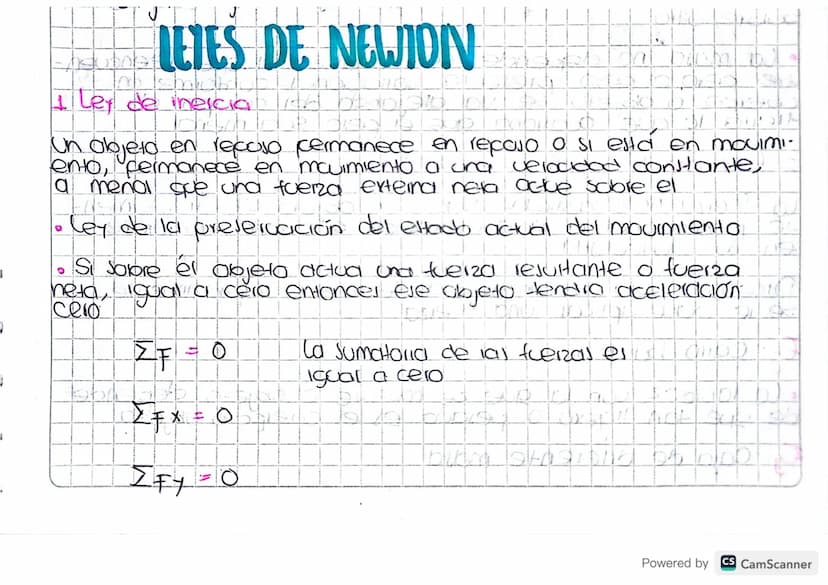 LEYES DE NEWTON
1 Ley de inercia
Un objeto en reposo permanece en reposo o si está en movimi-
ento, permanece en movimiento a una velocidad constante,
a menos que una fuerza externa neta actue sobre el
• Ley de la preservación del estado actual del movimiento
• Si sobre él objeto actua una fuerza resultante o fuerza
neta, igual a cero entonces ese objeto tendra aceleración
cero
ΣF = 0
La sumatoria de las fuerzas es
igual a cero
ΣFx = 0
ΣFy = 0
Powered by CS CamScanner